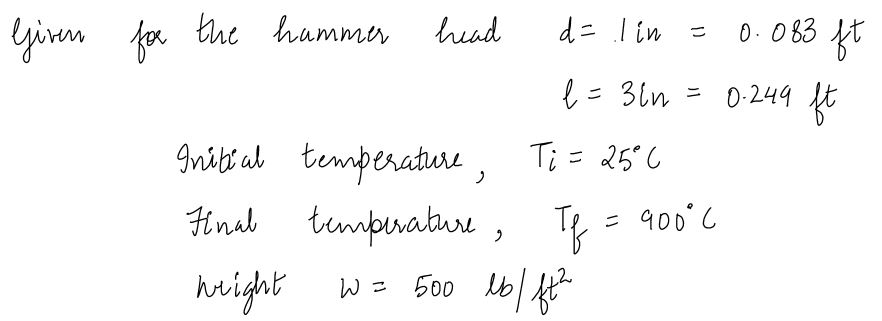 Given for the hammer head d = 1 in = 0.083 ft
l = 3 in = 0.249 ft
Initial temperature, Ti = 25°C
Final temperature, Tf = 900°C
weight w = 500 lb/ft²